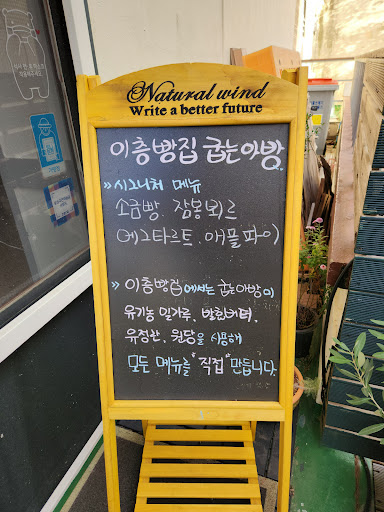 Natural wind
Write a better future
이층빵집 굽는아빵
» 시그니처 메뉴
소금빵. 잠봉뵈르
에그타르트. 애플파이
» 이층빵집에서는 굽는아빵이
유기농 밀가루, 발효버터,
유정란, 원당을 사용해
모든 메뉴를 "직접" 만듭니다.